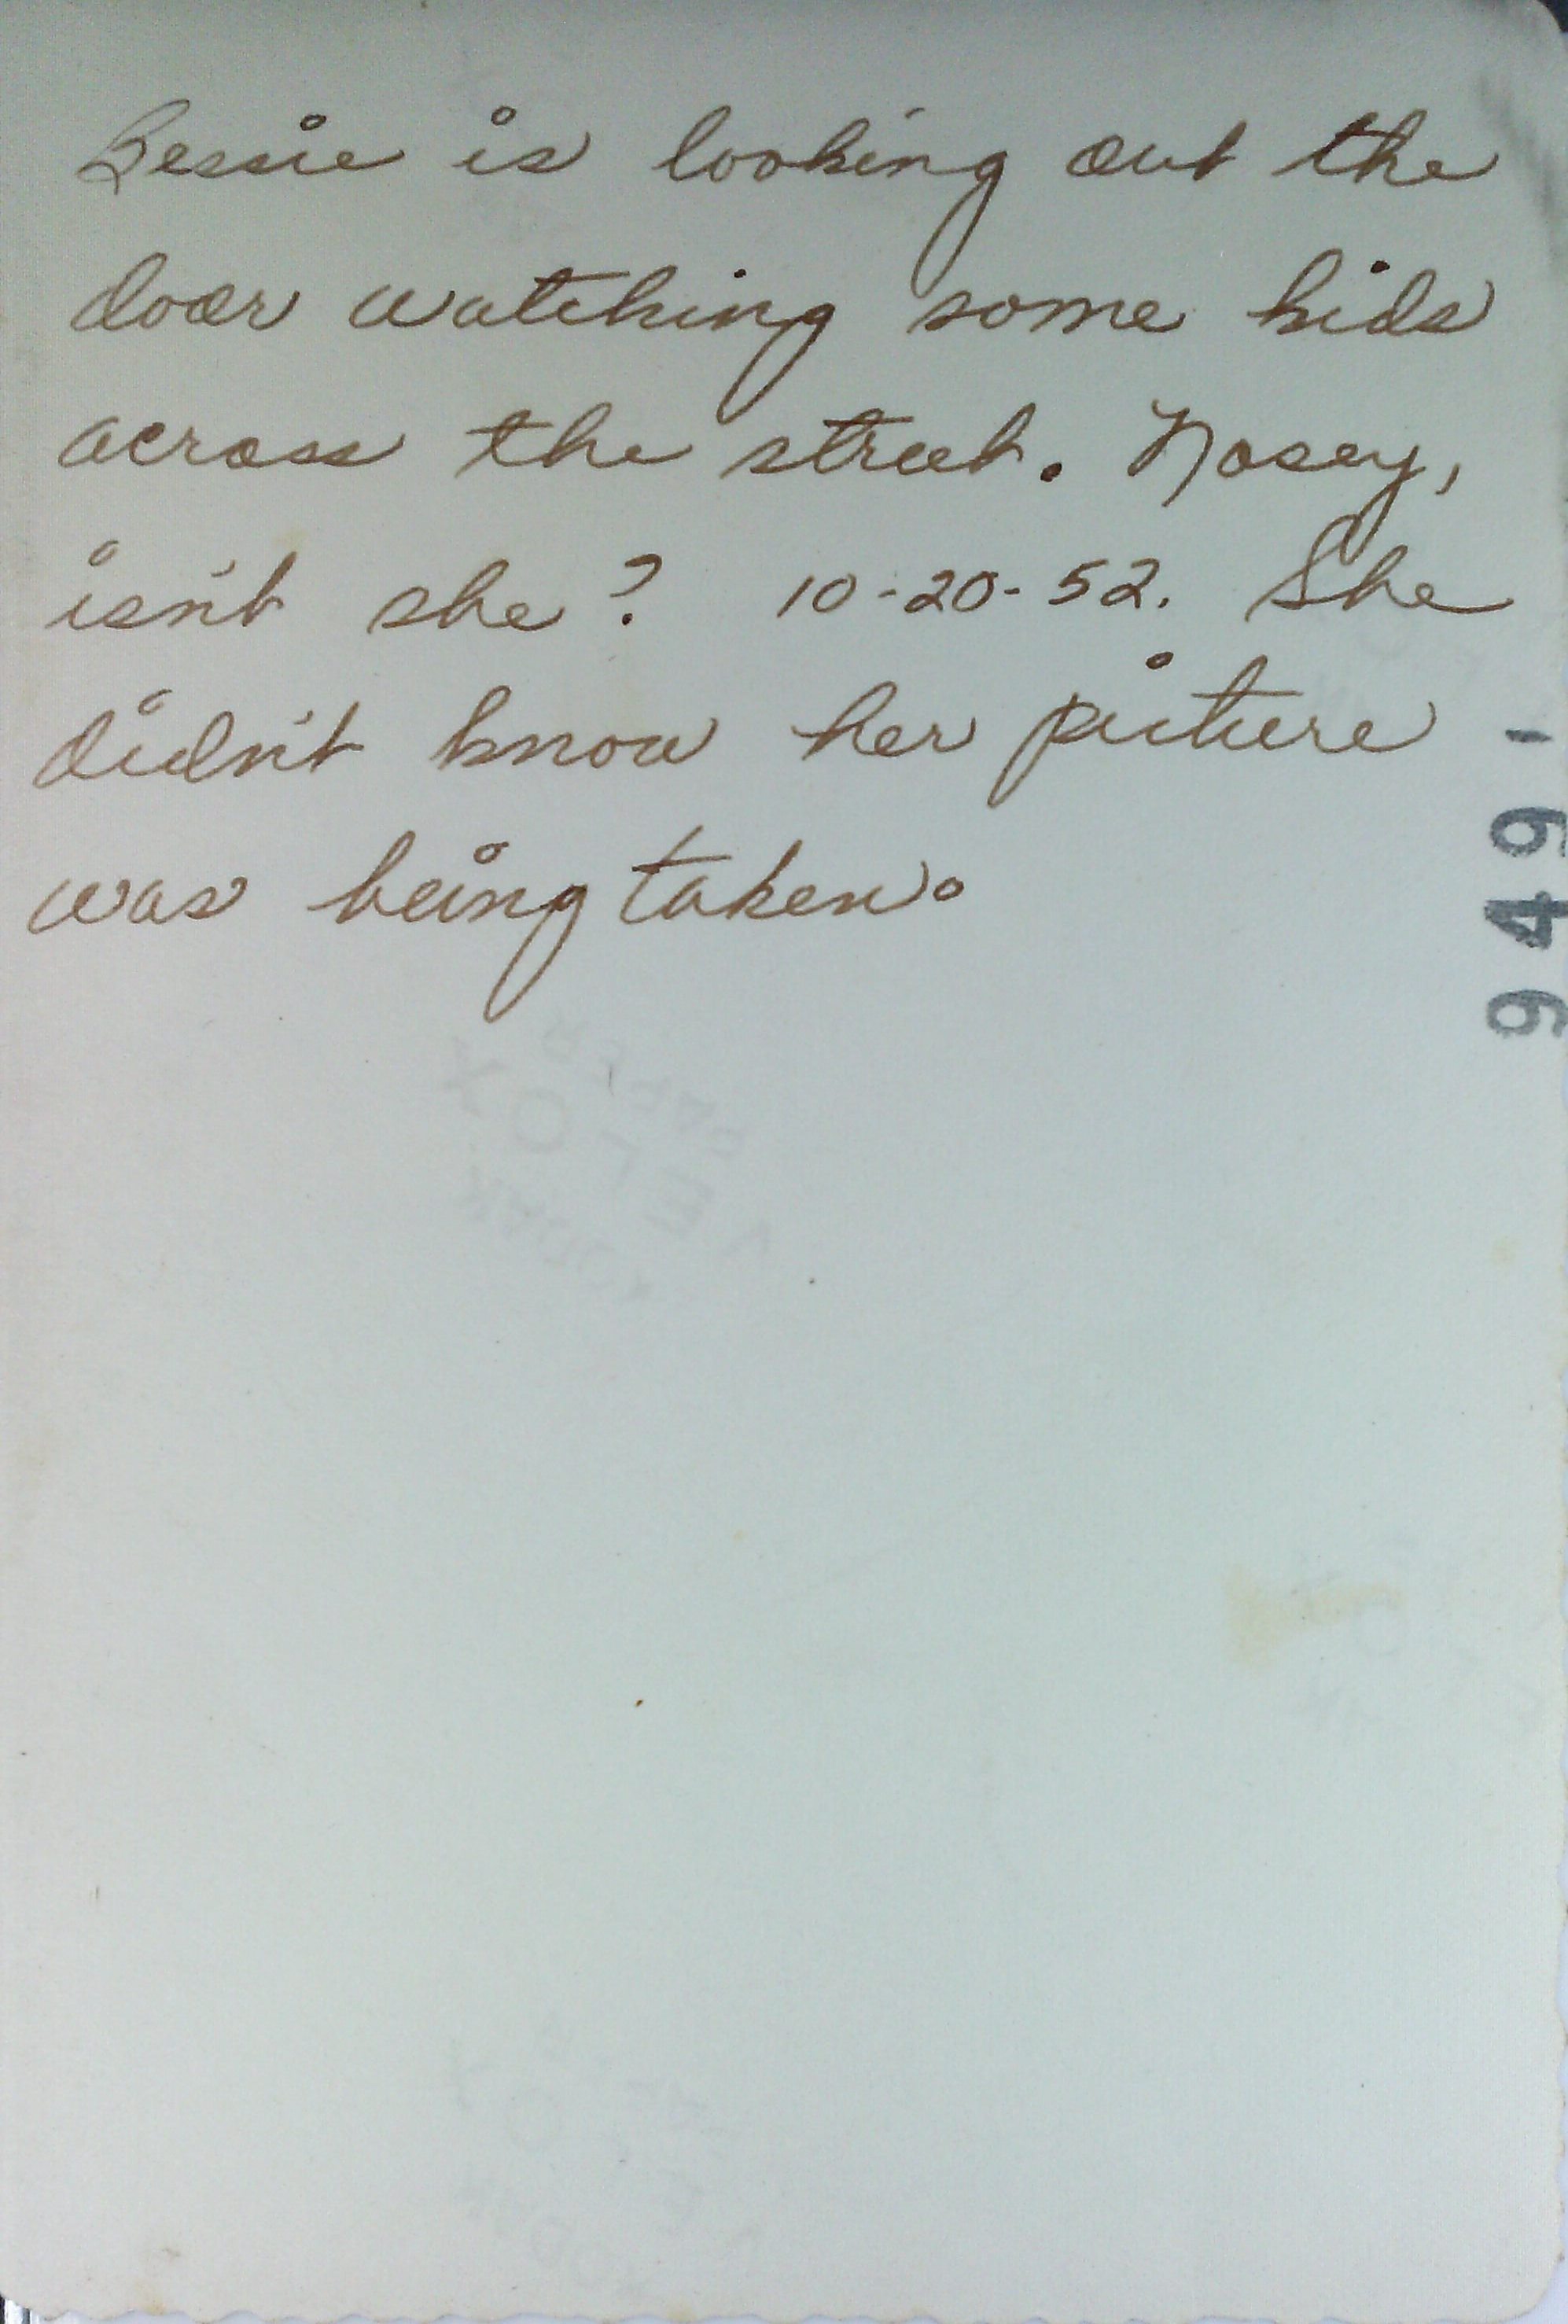 Bessie is looking out the
door watching some kids
across the street. Nosey,
isn't she? 10-20-52. She
didn't know her picture
was being taken.
949
VELOX
PAPER